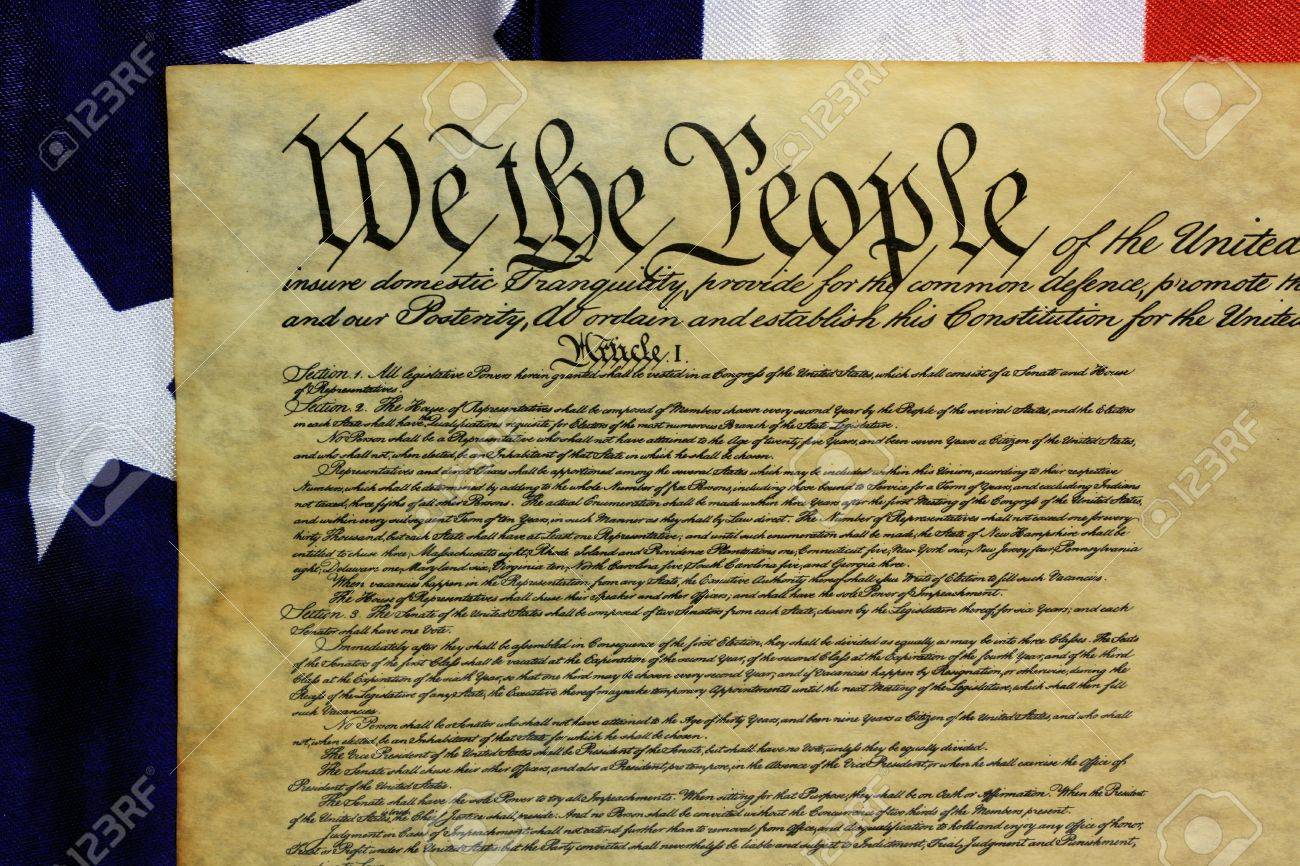 We the People of the United
insure domestic Tranquility, provide for the common defence, promote th
and our Posterity, do ordain and establish this Constitution for the United
Article. I.
Section. 1. All legislative Powers herein granted shall be vested in a Congress of the United States, which shall consist of a Senate and House
of Representatives.
Section. 2. The House of Representatives shall be composed of Members chosen every second Year by the People of the several States, and the Electors
in each State shall have the Qualifications requisite for Electors of the most numerous Branch of the State Legislature.
No Person shall be a Representative who shall not have attained to the Age of twenty five Years, and been seven Years a Citizen of the United States,
and who shall not, when elected, be an Inhabitant of that State in which he shall be chosen.
Representatives and direct Taxes shall be apportioned among the several States which may be included within this Union, according to their respective
Numbers, which shall be determined by adding to the whole Number of free Persons, including those bound to Service for a Term of Years, and excluding Indians
not taxed, three fifths of all other Persons. The actual Enumeration shall be made within three Years after the first Meeting of the Congress of the United States,
and within every subsequent Term of ten Years, in such Manner as they shall by Law direct. The Number of Representatives shall not exceed one for every
thirty Thousand, but each State shall have at Least one Representative; and until such enumeration shall be made, the State of New Hampshire shall be
entitled to chuse three, Massachusetts eight, Rhode Island and Providence Plantations one, Connecticut five, New York six, New Jersey four, Pennsylvania
eight, Delaware one, Maryland six, Virginia ten, North Carolina five, South Carolina five, and Georgia three.
When vacancies happen in the Representation from any State, the Executive Authority thereof shall issue Writs of Election to fill such Vacancies.
The House of Representatives shall chuse their Speaker and other Officers; and shall have the sole Power of Impeachment.
Section. 3. The Senate of the United States shall be composed of two Senators from each State, chosen by the Legislature thereof, for six Years; and each
Senator shall have one Vote.
Immediately after they shall be assembled in Consequence of the first Election, they shall be divided as equally as may be into three Classes. The Seats
of the Senators of the first Class shall be vacated at the Expiration of the second Year, of the second Class at the Expiration of the fourth Year, and of the third
Class at the Expiration of the sixth Year, so that one third may be chosen every second Year; and if Vacancies happen by Resignation, or otherwise, during the
Recess of the Legislature of any State, the Executive thereof may make temporary Appointments until the next Meeting of the Legislature, which shall then fill
such Vacancies.
No Person shall be a Senator who shall not have attained to the Age of thirty Years, and been nine Years a Citizen of the United States, and who shall
not, when elected, be an Inhabitant of that State for which he shall be chosen.
The Vice President of the United States shall be President of the Senate, but shall have no Vote, unless they be equally divided.
The Senate shall chuse their other Officers, and also a President pro tempore, in the Absence of the Vice President, or when he shall exercise the Office of
President of the United States.
The Senate shall have the sole Power to try all Impeachments. When sitting for that Purpose, they shall be on Oath or Affirmation. When the President
of the United States is tried, the Chief Justice shall preside: And no Person shall be convicted without the Concurrence of two thirds of the Members present.
Judgment in Cases of Impeachment shall not extend further than to removal from Office, and disqualification to hold and enjoy any Office of honor,
Trust or Profit under the United States: but the Party convicted shall nevertheless be liable and subject to Indictment, Trial, Judgment and Punishment,
123RF